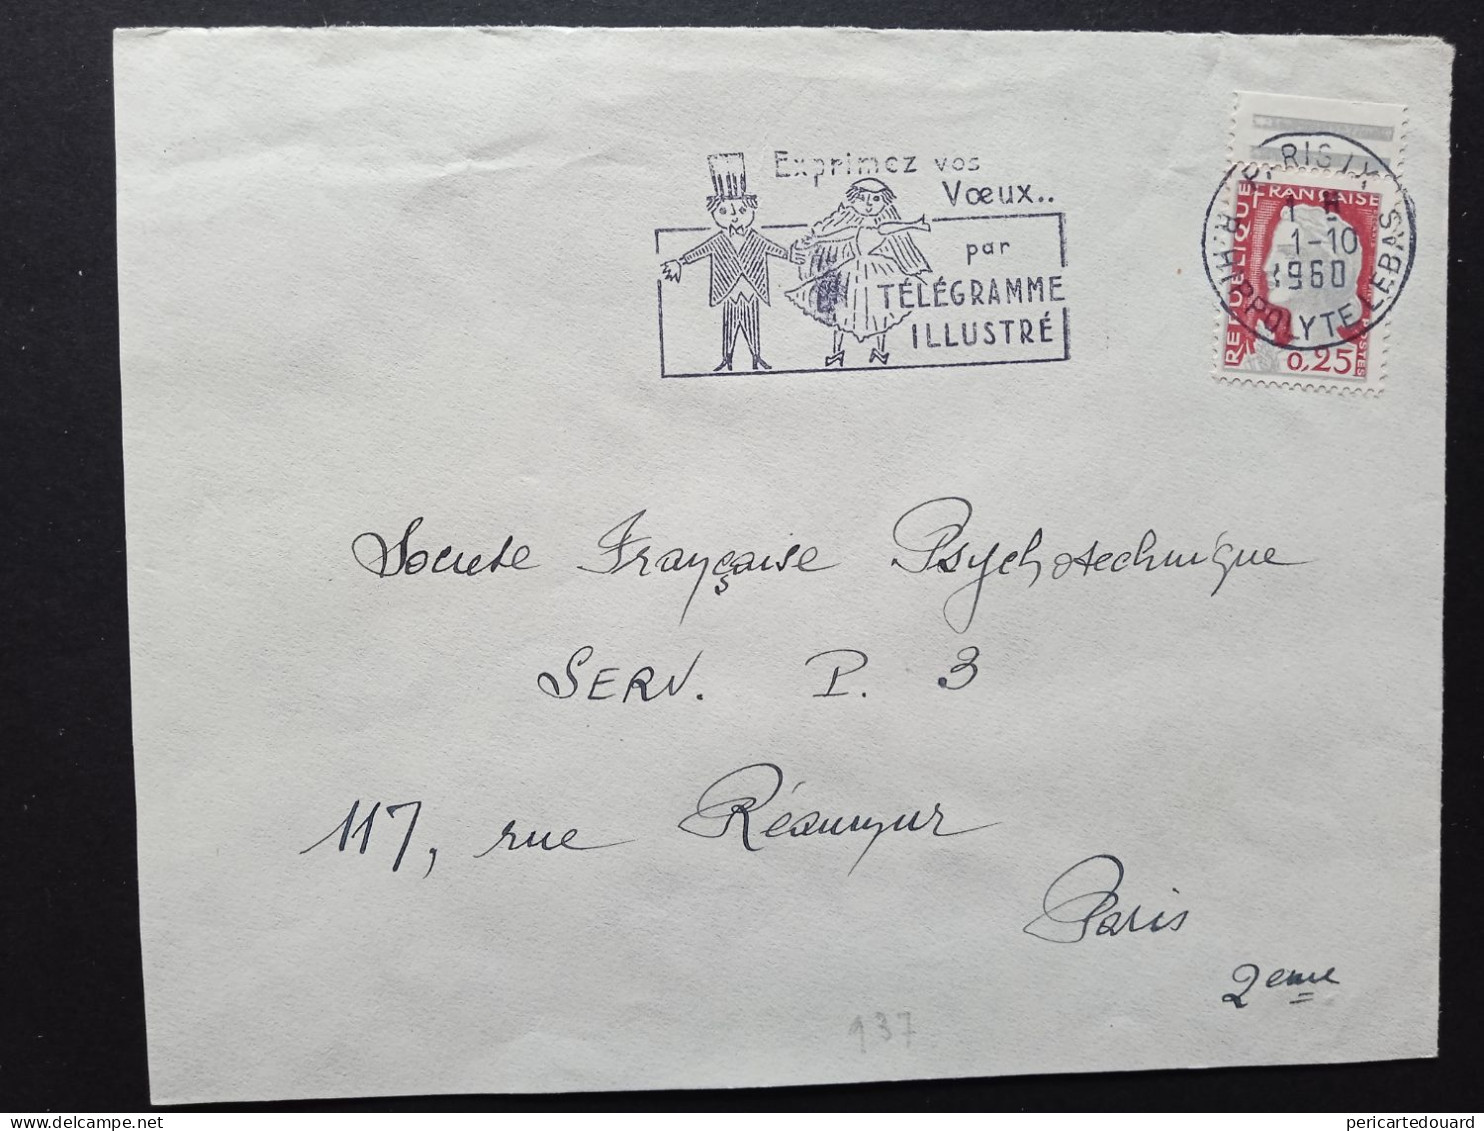 Exprimez vos
Vœux..
par
TÉLÉGRAMME
ILLUSTRÉ
PARIS IX
1 H
1-10
1960
R. HIPPOLYTE LEBAS
RÉPUBLIQUE FRANÇAISE
POSTES
0,25
Societe Française Psychotechnique
SERV. P. 3
117, rue Réaumur
Paris
2eme
137
pericartedouard